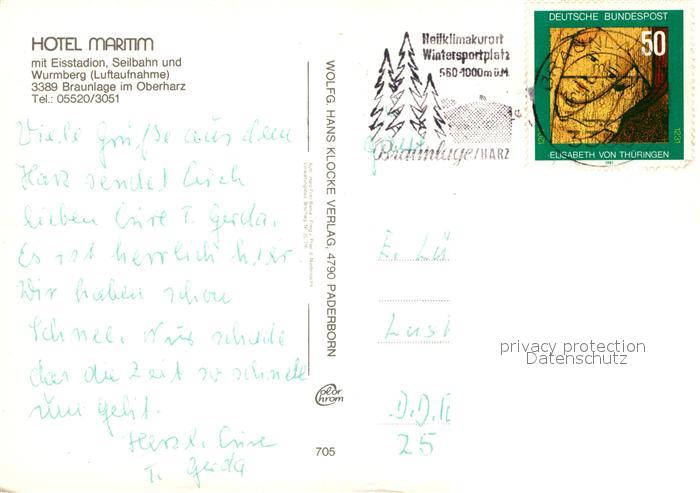 HOTEL MARITIM
mit Eisstadion, Seilbahn und
Wurmberg (Luftaufnahme)
3389 Braunlage im Oberharz
Tel.: 05520/3051
Viele Grüße aus dem
Harz sendet Euch
lieben Eure T. Gerda.
Es ist herrlich hier.
Wir haben schon
Schnee. Nur schade
das die Zeit so schnell
rum geht.
Herzl. Eure
T. Gerda
WOLFG. HANS KLOCKE VERLAG, 4790 PADERBORN
Color
chrom
705
Heilklimakurort
Wintersportplatz
560-1000m ü.M.
Braunlage/HARZ
DEUTSCHE BUNDESPOST
50
1231
ELISABETH VON THÜRINGEN
1981
E. Lü
Lust
D.D.R
25
privacy protection
Datenschutz